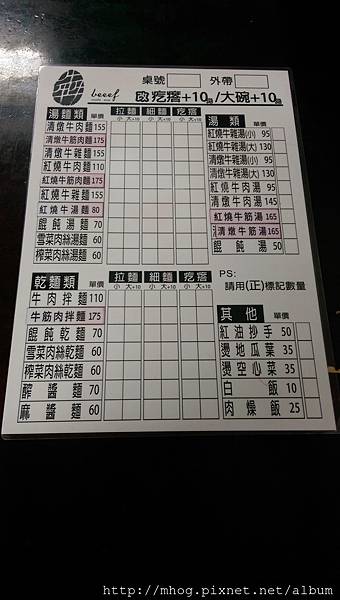 beeef
桌號 外帶
改疙瘩+10元/大碗+10元
湯麵類 單價 拉麵 細麵 疙瘩
小 大+10 小 大+10 小 大+10
清燉牛肉麵 155
清燉牛筋肉麵 175
清燉牛雜麵 155
紅燒牛肉麵 110
紅燒牛筋肉麵 175
紅燒牛雜麵 155
紅燒牛湯麵 80
餛飩湯麵 70
雪菜肉絲湯麵 60
榨菜肉絲湯麵 60
湯類 單價
紅燒牛雜湯(小) 95
紅燒牛雜湯(大) 130
清燉牛雜湯(小) 95
清燉牛雜湯(大) 130
紅燒牛肉湯 95
清燉牛肉湯 145
紅燒牛筋湯 165
清燉牛筋湯 165
餛飩湯 50
乾麵類 單價 拉麵 細麵 疙瘩
小 大+10 小 大+10 小 大+10
牛肉拌麵 110
牛筋肉拌麵 175
餛飩乾麵 70
雪菜肉絲乾麵 60
榨菜肉絲乾麵 60
醡醬麵 70
麻醬麵 60
PS:
請用(正)標記數量
其他 單價
紅油抄手 50
燙地瓜葉 35
燙空心菜 35
白飯 10
肉燥飯 25
http://mhog.pixnet.net/album